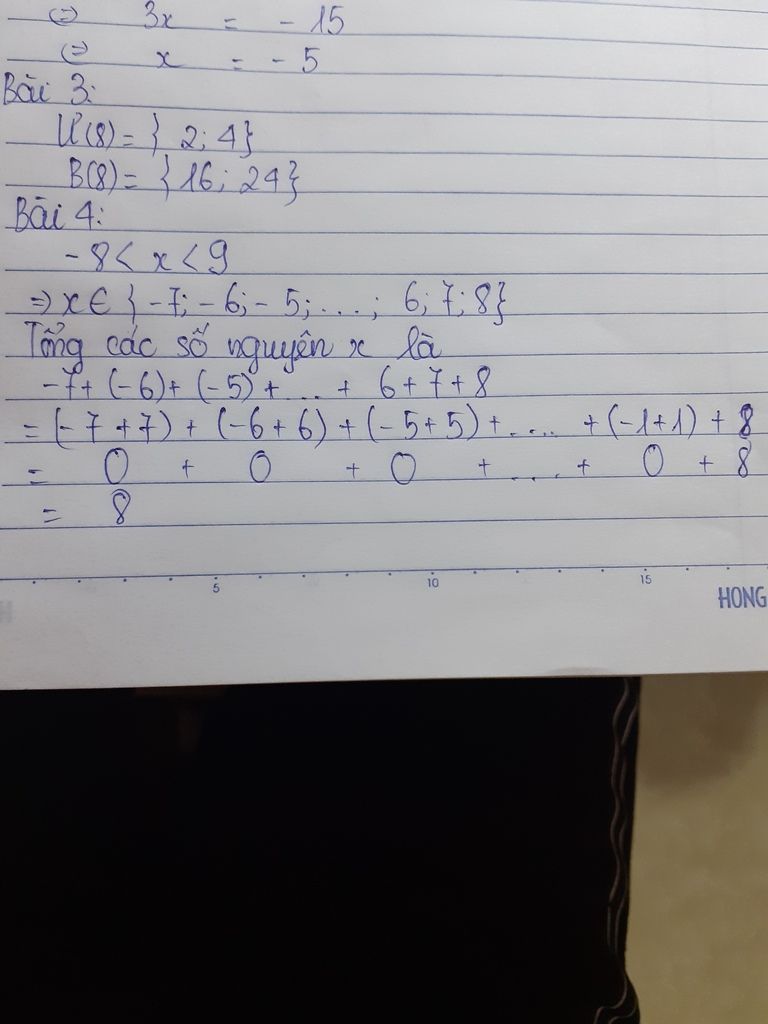 ⇔ 3x = - 15
⇔ x = - 5
Bài 3:
Ư(8) = { 2; 4}
B(8) = { 16; 24}
Bài 4:
- 8 < x < 9
⇒ x ∈ { -7; - 6; - 5; ...; 6; 7; 8}
Tổng các số nguyên x là
-7 + (-6) + (-5) + ... + 6 + 7 + 8
= (-7 + 7) + (-6 + 6) + (-5 + 5) + .... + (-1 + 1) + 8
= 0 + 0 + 0 + .... + 0 + 8
= 8
5 10 15
HONG